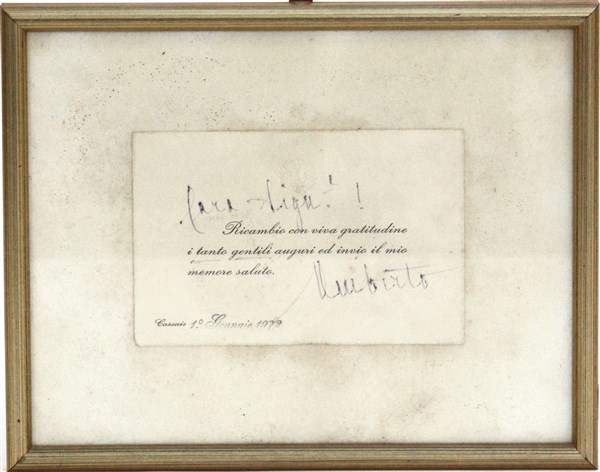 Cara Sigra!
Ricambio con viva gratitudine
i tanto gentili auguri ed invio il mio
memore saluto.
Umberto
Cascais 1º Gennaio 1972